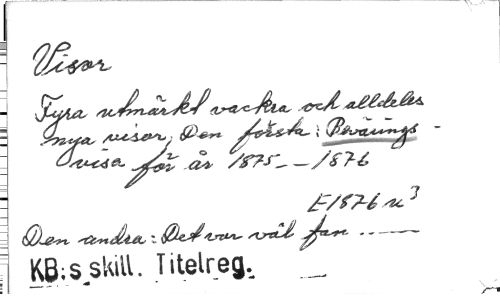 Visor
Fyra utmärkt vackra och alldeles
nya visor, Den första: Bevärings-
visa för år 1875 -- 1876
E1876 u³
Den andra: Det var väl fan .......
KB:s skill. Titelreg.